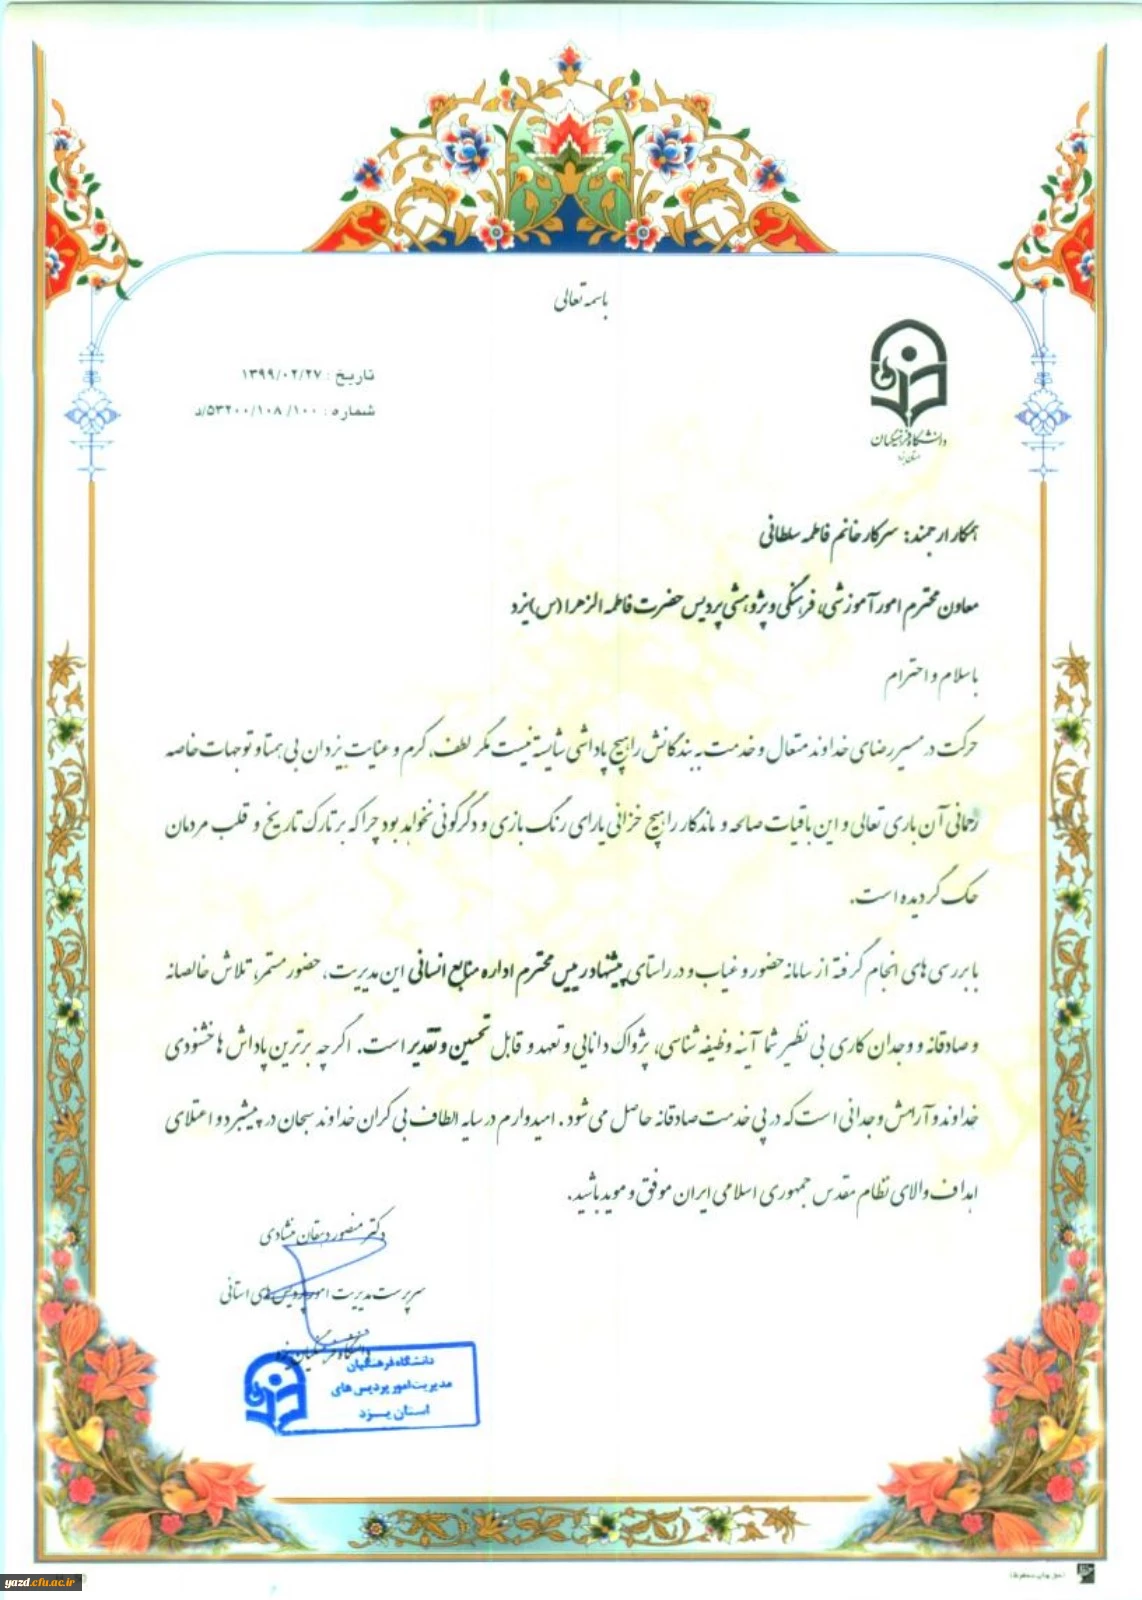 باسمه تعالی
دانشگاه فرهنگیان
استان یزد
تاریخ : ۱۳۹۹/۰۲/۲۷
شماره : ۱۰۰/ ۵۳۲۰۰/۱۰۸/د
همکار ارجمند: سرکار خانم فاطمه سلطانی
معاون محترم امور آموزشی، فرهنگی و پژوهشی پردیس حضرت فاطمه الزهرا (س) یزد
با سلام و احترام
حرکت در مسیر رضای خداوند متعال و خدمت به بندگانش را هیچ پاداشی شایسته نیست مگر لطف، کرم و عنایت یزدان بی همتا و توجهات خاصه
رحمانی آن باری تعالی و این باقیات صالحه و ماندگار را هیچ خزانی یارای رنگ بازی و دگرگونی نخواهد بود چرا که بر تارک تاریخ و قلب مردمان
حک گردیده است.
با بررسی های انجام گرفته از سامانه حضور و غیاب و در راستای پیشنهاد رییس محترم اداره منابع انسانی این مدیریت، حضور مستمر، تلاش خالصانه
و صادقانه و وجدان کاری بی نظیر شما آینه وظیفه شناسی، پژواک دانایی و تعهد و قابل تحسین و تقدیر است. اگر چه برترین پاداش ها خشنودی
خداوند و آرامش وجدانی است که در پی خدمت صادقانه حاصل می شود . امیدوارم در سایه الطاف بی کران خداوند سبحان در پیشبرد و اعتلای
اهداف والای نظام مقدس جمهوری اسلامی ایران موفق و موید باشید.
دکتر منصور دهقان منشادی
سرپرست مدیریت امور پردیس های استانی
دانشگاه فرهنگیان یزد
دانشگاه فرهنگیان
مدیریت امور پردیس های
استان یزد
yazd.cfu.ac.ir